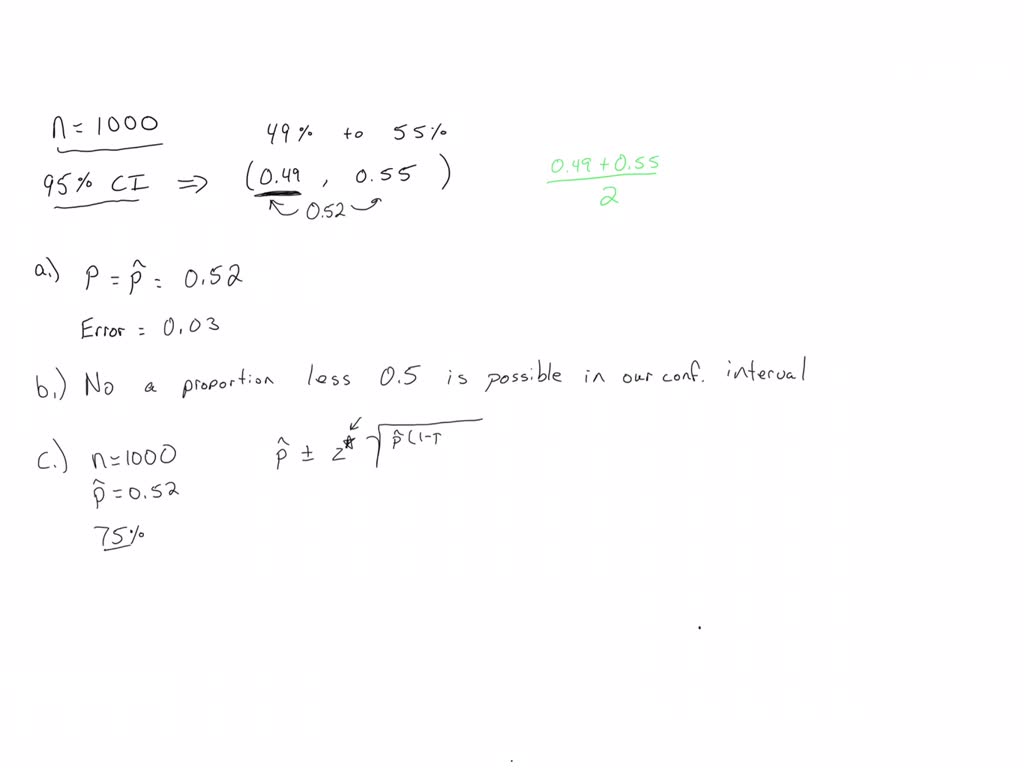 n = 1000
49% to 55%
95% CI ⇒ (0.49 , 0.55)
0.52
0.49 + 0.55
2
a.) P = p̂ = 0.52
Error = 0.03
b.) No a proportion less 0.5 is possible in our conf. interval
c.) n = 1000
p̂ ± z* √p̂(1-
p̂ = 0.52
75%